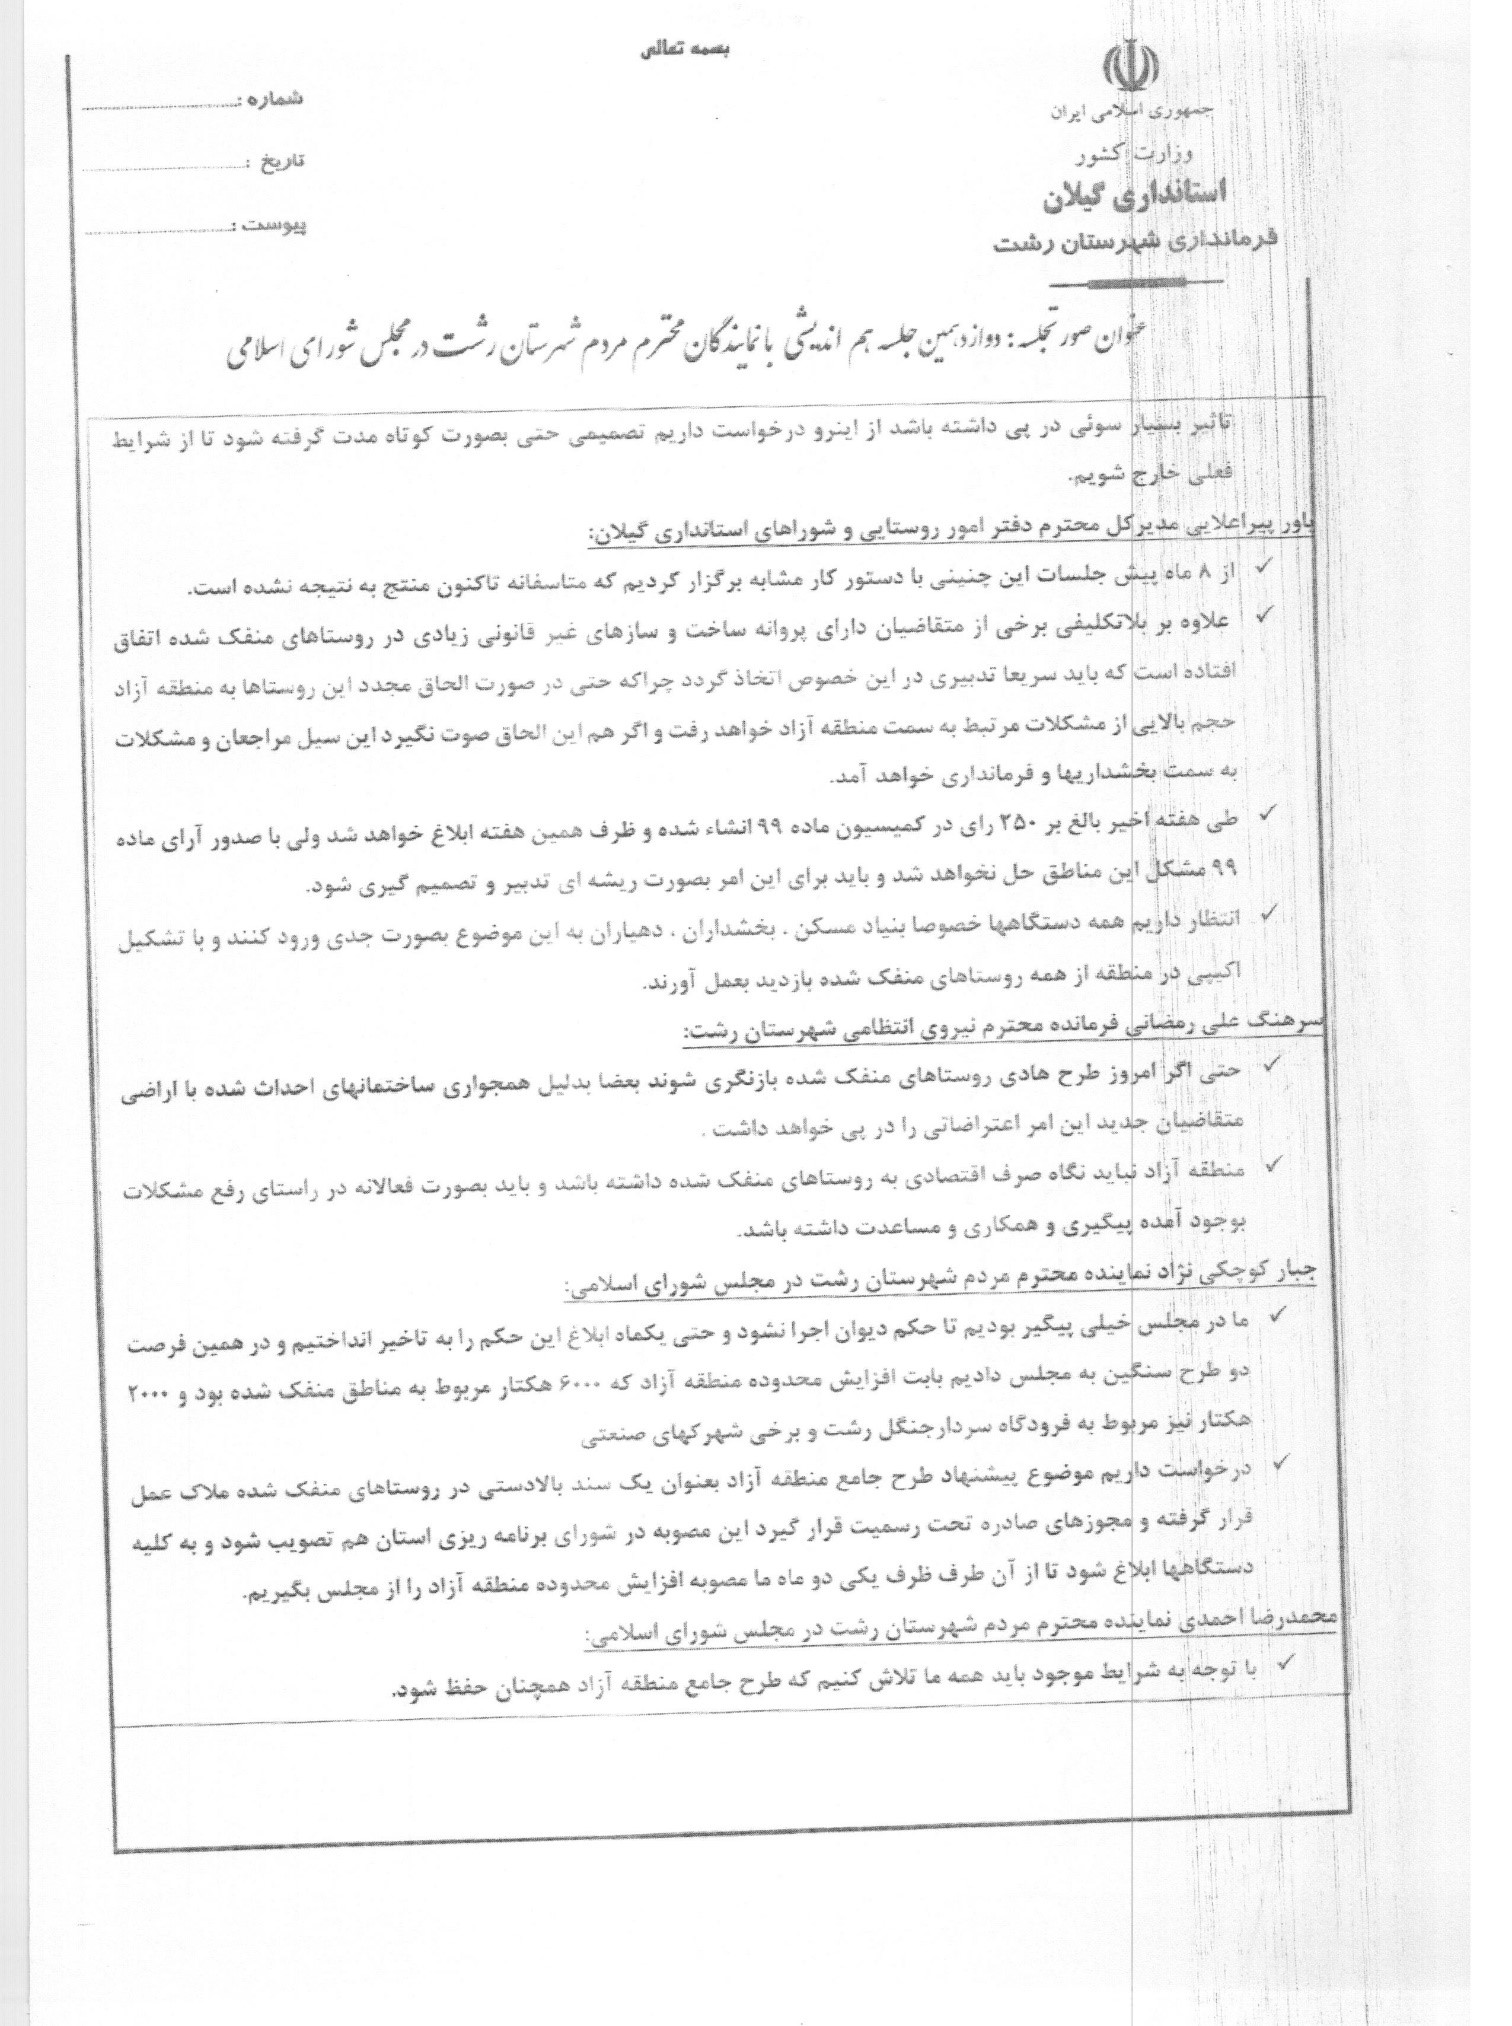 بسمه تعالی
جمهوری اسلامی ایران
وزارت کشور
استانداری گیلان
فرمانداری شهرستان رشت
شماره :
تاریخ :
پیوست :
عنوان صورتجلسه : دوازدهمین جلسه هم اندیشی با نمایندگان محترم مردم شهرستان رشت در مجلس شورای اسلامی
تاثیر بسیار سوئی در پی داشته باشد از اینرو درخواست داریم تصمیمی حتی بصورت کوتاه مدت گرفته شود تا از شرایط
فعلی خارج شویم.
یاور پیراعلایی مدیرکل محترم دفتر امور روستایی و شوراهای استانداری گیلان:
✓ از ۸ ماه پیش جلسات این چنینی با دستور کار مشابه برگزار کردیم که متاسفانه تاکنون منتج به نتیجه نشده است.
✓ علاوه بر بلاتکلیفی برخی از متقاضیان دارای پروانه ساخت و سازهای غیر قانونی زیادی در روستاهای منفک شده اتفاق
افتاده است که باید سریعا تدبیری در این خصوص اتخاذ گردد چراکه حتی در صورت الحاق مجدد این روستاها به منطقه آزاد
حجم بالایی از مشکلات مرتبط به سمت منطقه آزاد خواهد رفت و اگر هم این الحاق صوت نگیرد این سیل مراجعان و مشکلات
به سمت بخشداریها و فرمانداری خواهد آمد.
✓ طی هفته اخیر بالغ بر ۲۵۰ رای در کمیسیون ماده ۹۹ انشاء شده و ظرف همین هفته ابلاغ خواهد شد ولی با صدور آرای ماده
۹۹ مشکل این مناطق حل نخواهد شد و باید برای این امر بصورت ریشه ای تدبیر و تصمیم گیری شود.
✓ انتظار داریم همه دستگاهها خصوصا بنیاد مسکن ، بخشداران ، دهیاران به این موضوع بصورت جدی ورود کنند و با تشکیل
اکیپی در منطقه از همه روستاهای منفک شده بازدید بعمل آورند.
سرهنگ علی رمضانی فرمانده محترم نیروی انتظامی شهرستان رشت:
✓ حتی اگر امروز طرح هادی روستاهای منفک شده بازنگری شوند بعضا بدلیل همجواری ساختمانهای احداث شده با اراضی
متقاضیان جدید این امر اعتراضاتی را در پی خواهد داشت .
✓ منطقه آزاد نباید نگاه صرف اقتصادی به روستاهای منفک شده داشته باشد و باید بصورت فعالانه در راستای رفع مشکلات
بوجود آمده پیگیری و همکاری و مساعدت داشته باشد.
جبار کوچکی نژاد نماینده محترم مردم شهرستان رشت در مجلس شورای اسلامی:
✓ ما در مجلس خیلی پیگیر بودیم تا حکم دیوان اجرا نشود و حتی یکماه ابلاغ این حکم را به تاخیر انداختیم و در همین فرصت
دو طرح سنگین به مجلس دادیم بابت افزایش محدوده منطقه آزاد که ۶۰۰۰ هکتار مربوط به مناطق منفک شده بود و ۲۰۰۰
هکتار نیز مربوط به فرودگاه سردارجنگل رشت و برخی شهرکهای صنعتی
✓ درخواست داریم موضوع پیشنهاد طرح جامع منطقه آزاد بعنوان یک سند بالادستی در روستاهای منفک شده ملاک عمل
قرار گرفته و مجوزهای صادره تحت رسمیت قرار گیرد این مصوبه در شورای برنامه ریزی استان هم تصویب شود و به کلیه
دستگاهها ابلاغ شود تا از آن طرف ظرف یکی دو ماه ما مصوبه افزایش محدوده منطقه آزاد را از مجلس بگیریم.
محمدرضا احمدی نماینده محترم مردم شهرستان رشت در مجلس شورای اسلامی:
✓ با توجه به شرایط موجود باید همه ما تلاش کنیم که طرح جامع منطقه آزاد همچنان حفظ شود.